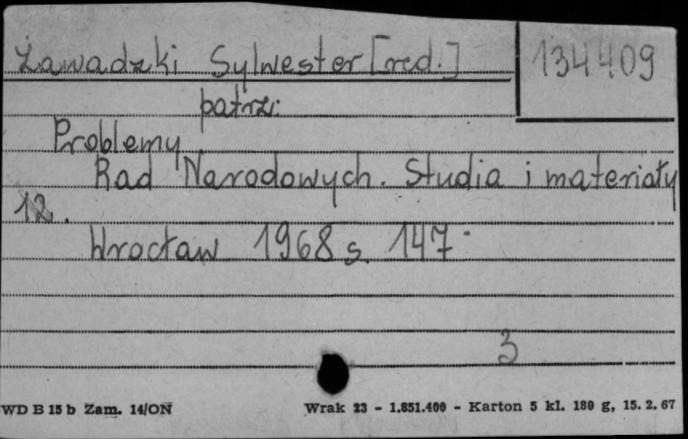 Zawadzki Sylwester [red.]
134409
patrz:
Problemy
Rad Narodowych. Studia i materiały
12.
Wrocław 1968 s. 147
3
WD B 15 b Zam. 14/ON
Wrak 23 - 1.851.400 - Karton 5 kl. 180 g, 15. 2. 67